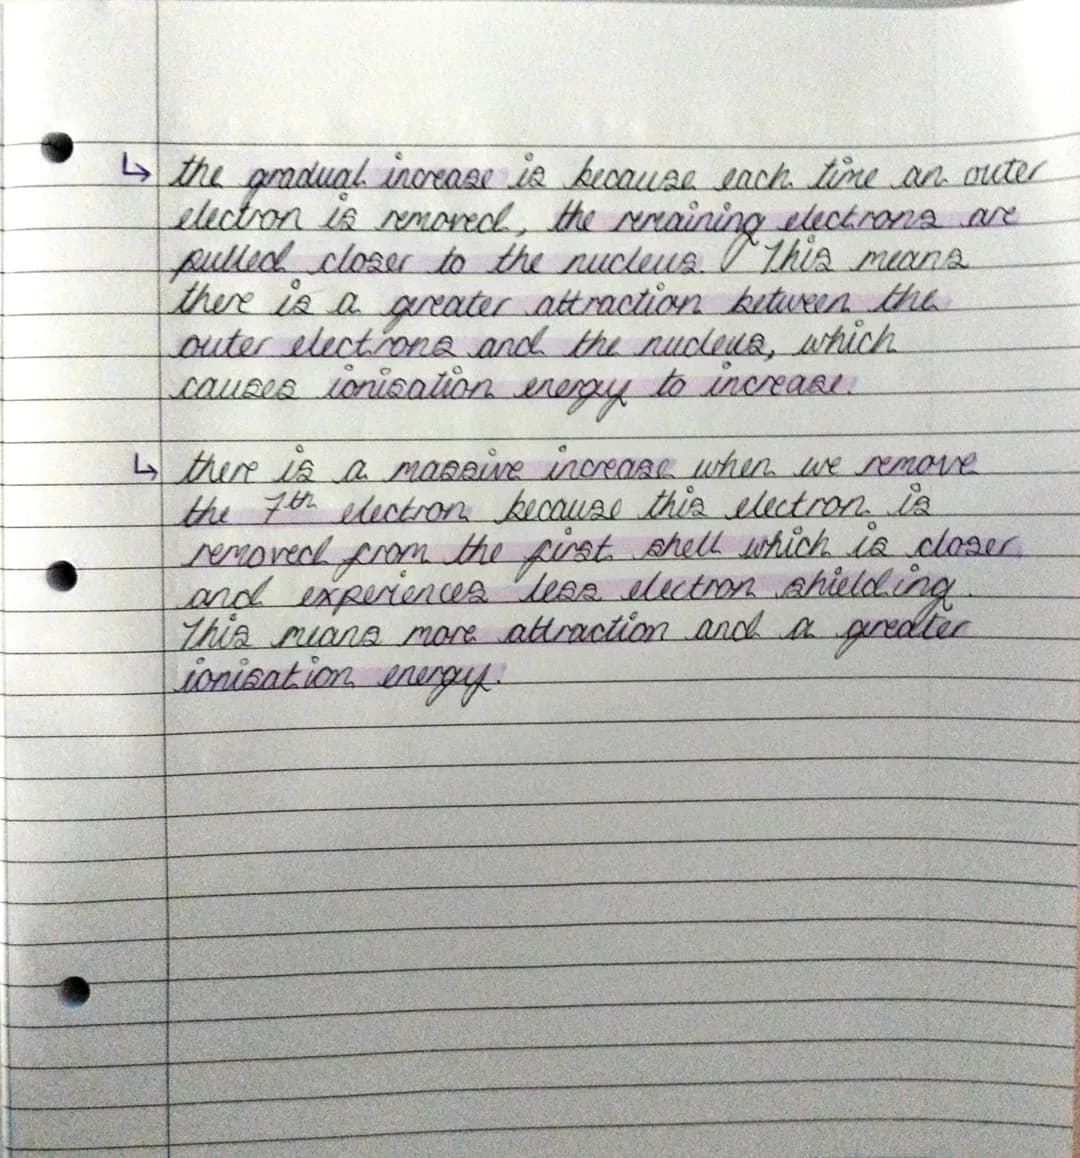 ↳ the gradual increase is because each time an outer
electron is removed, the remaining electrons are
pulled closer to the nucleus. This means
there is a greater attraction between the
outer electrons and the nucleus, which
causes ionisation energy to increase.
↳ there is a massive increase when we remove
the 7th electron because this electron is
removed from the first shell which is closer
and experiences less electron shielding.
This means more attraction and a greater
ionisation energy.